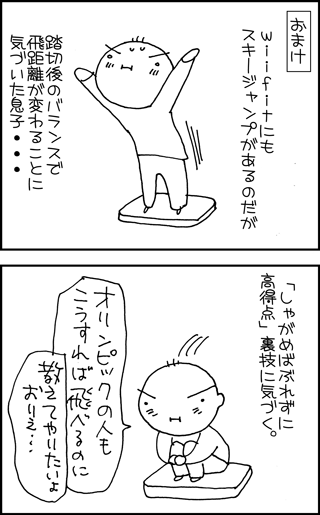 おまけ
Wiifitにも
スキージャンプがあるのだが
踏切後のバランスで
飛距離が変わることに
気づいた息子・・・
「しゃがめばぶれずに
高得点」裏技に気づく。
オリンピックの人も
こうすれば飛べるのに
教えてやりたいよ
おりえ…